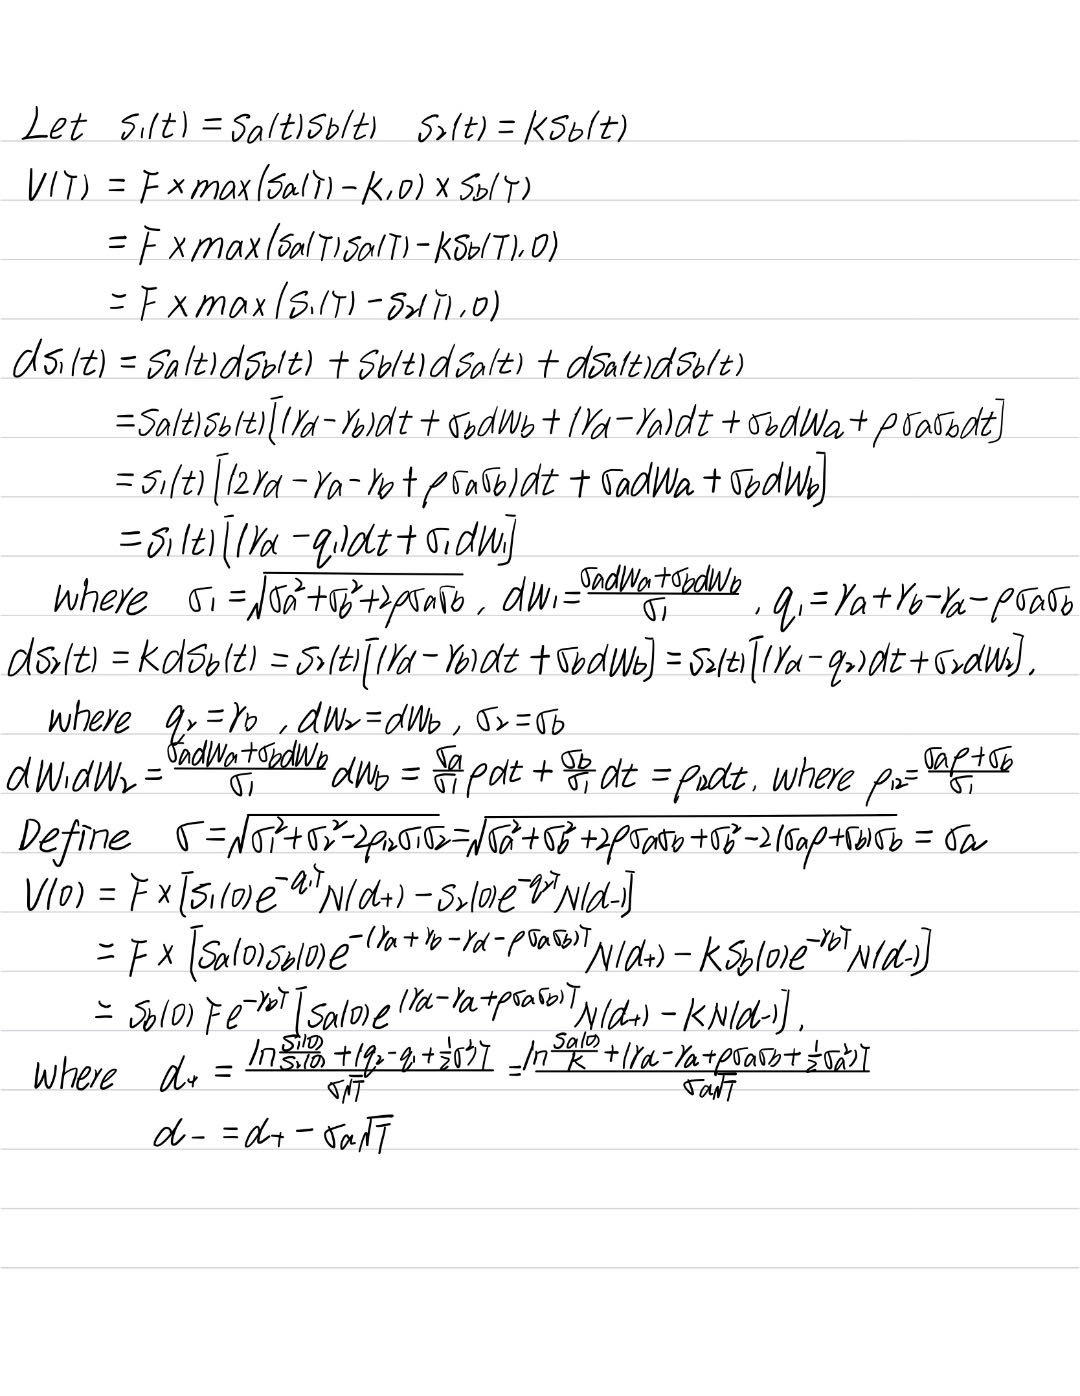 Let S₁(t) = Sa(t)Sb(t)  S₂(t) = KSb(t)
V(T) = F × max(Sa(T) - K, 0) × Sb(T)
= F × max(Sa(T)Sa(T) - KSb(T), 0)
= F × max(S₁(T) - S₂(T), 0)
dS₁(t) = Sa(t)dSb(t) + Sb(t)dSa(t) + dSa(t)dSb(t)
= Sa(t)Sb(t)[(rd - rb)dt + σbdWb + (rd - ra)dt + σbdWa + ρσaσbdt]
= S₁(t)[(2rd - ra - rb + ρσaσb)dt + σadWa + σbdWb]
= S₁(t)[(rd - q₁)dt + σ₁dW₁]
where σ₁ = √(σa² + σb² + 2ρσaσb), dW₁ = (σadWa + σbdWb)/σ₁, q₁ = ra + rb - rd - ρσaσb
dS₂(t) = KdSb(t) = S₂(t)[(rd - rb)dt + σbdWb] = S₂(t)[(rd - q₂)dt + σ₂dW₂],
where q₂ = rb, dW₂ = dWb, σ₂ = σb
dW₁dW₂ = (σadWa + σbdWb)/σ₁ dWb = σa/σ₁ ρdt + σb/σ₁ dt = ρ₁₂dt, where ρ₁₂ = (σaρ + σb)/σ₁
Define σ = √(σ₁² + σ₂² - 2ρ₁₂σ₁σ₂) = √(σa² + σb² + 2ρσaσb + σb² - 2(σaρ + σb)σb) = σa
V(0) = F × [S₁(0)e^(-q₁T) N(d+) - S₂(0)e^(-q₂T) N(d-)]
= F × [Sa(0)Sb(0)e^(-(ra + rb - rd - ρσaσb)T) N(d+) - KSb(0)e^(-rbT) N(d-)]
= Sb(0)Fe^(-rbT)[Sa(0)e^((rd - ra + ρσaσb)T) N(d+) - KN(d-)],
where d+ = (ln S₁(0)/S₂(0) + (q₂ - q₁ + ½σ²)T)/(σ√T) = (ln Sa(0)/K + (rd - ra + ρσaσb + ½σa²)T)/(σa√T)
d- = d+ - σa√T